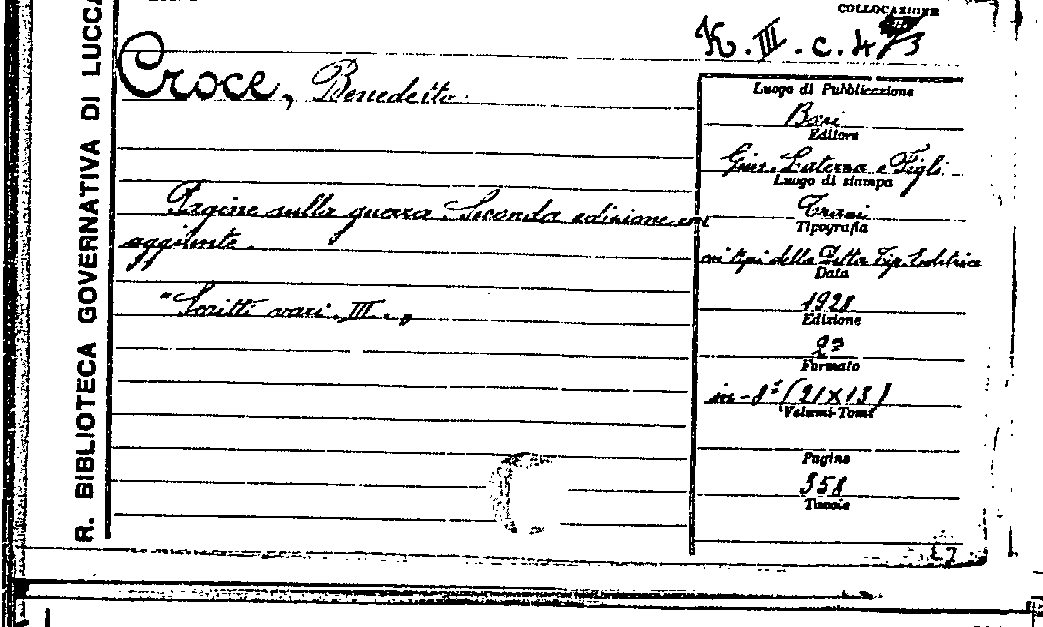 COLLOCAZIONE
K. III. c. 4
R. BIBLIOTECA GOVERNATIVA DI LUCCA
Croce, Benedetto.
Pagine sulla guerra. Seconda edizione con
aggiunte.
"Scritti vari. III.„
Luogo di Pubblicazione
Bari
Editore
Gius. Laterza e Figli.
Luogo di stampa
Trani
Tipografia
coi tipi della Ditta Tip. Editrice
Data
1928
Edizione
2ª
Formato
in-8° (21X13)
Volumi-Tomi
Pagine
358
Tavole